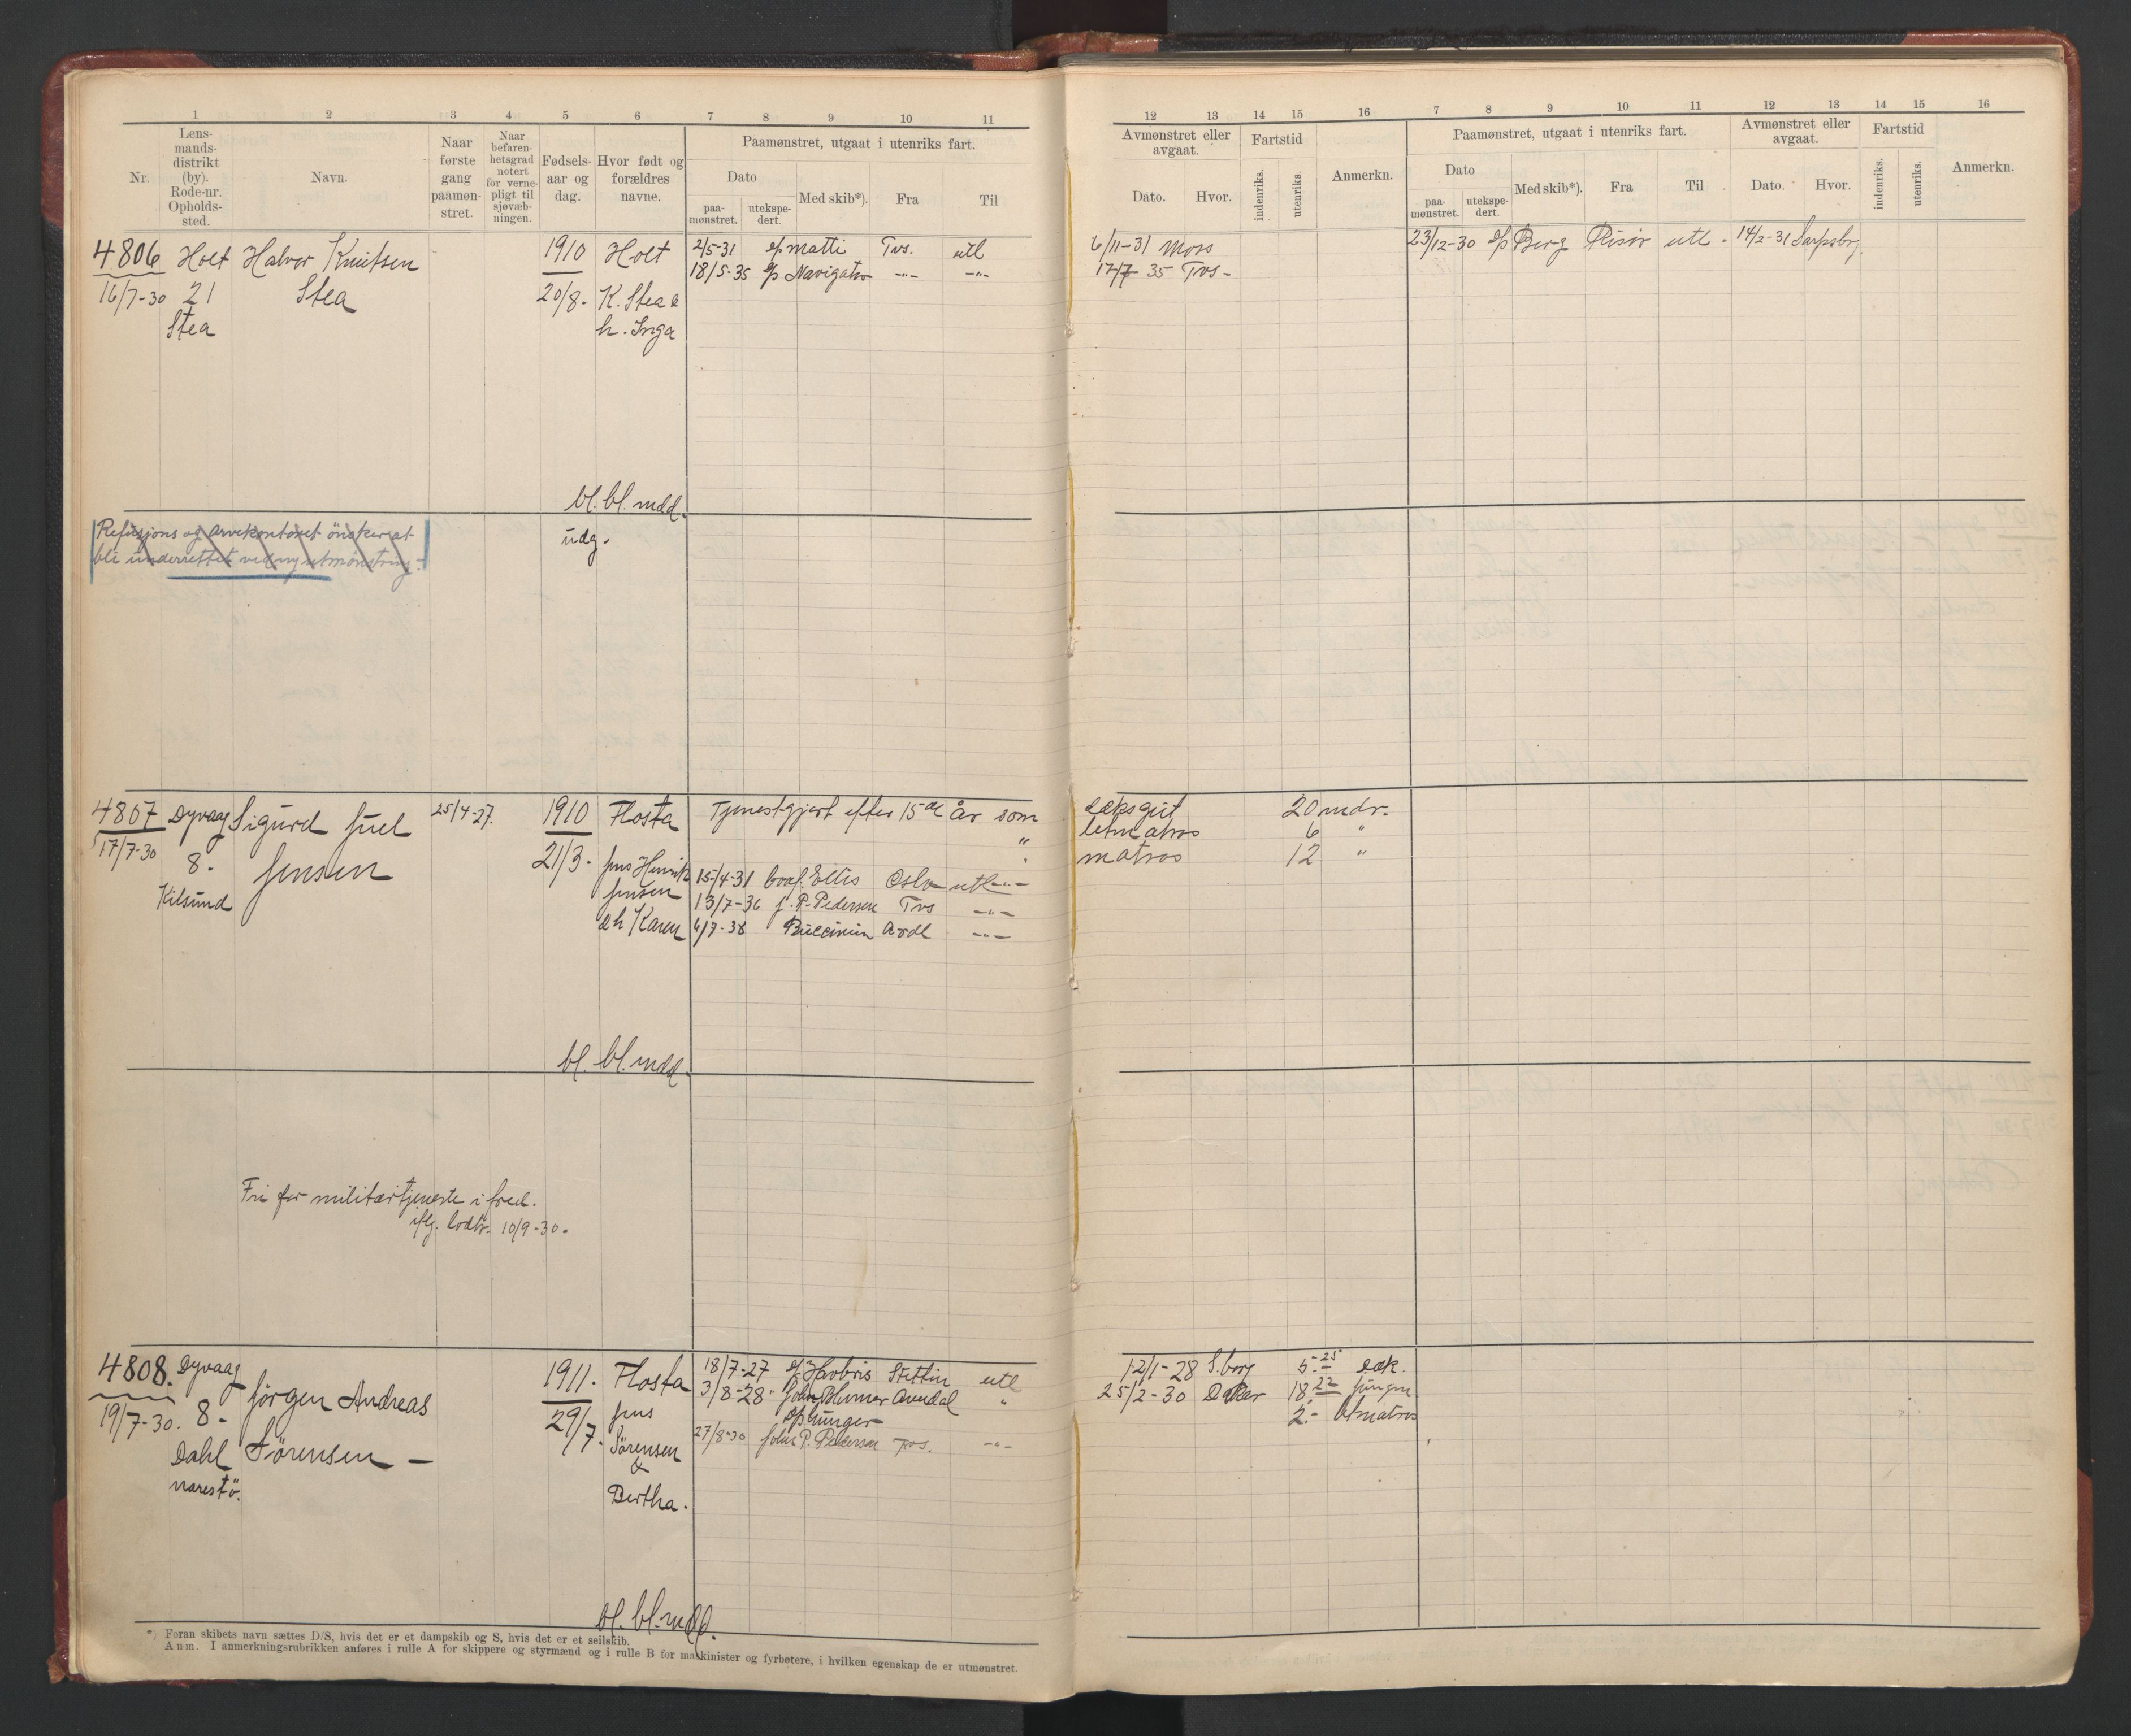 1 2 3 4 5 6 7 8 9 10 11
Nr.
Lens-
mands-
distrikt
(by).
Rode-nr.
Opholds-
sted.
Navn.
Naar
første
gang
paamøn-
stret.
Naar
befaren-
hetsgrad
notert
for verne-
pligt til
sjøvæb-
ningen.
Fødsels-
aar og
dag.
Hvor født og
forældres
navne.
Paamønstret, utgaat i utenriks fart.
Dato
paa-
mønstret.
utekspe-
dert.
Med skib*).
Fra
Til
12 13 14 15 16 7 8 9 10 11 12 13 14 15 16
Avmønstret eller
avgaat.
Dato. Hvor.
Fartstid
indenriks.
utenriks.
Anmerkn.
Paamønstret, utgaat i utenriks fart.
Dato
paa-
mønstret.
utekspe-
dert.
Med skib*).
Fra
Til
Avmønstret eller
avgaat.
Dato. Hvor.
Fartstid
indenriks.
utenriks.
Anmerkn.
4806 Holt Halvor Knutsen 1910 Holt 2/5-31 s/s Matti Tvs. utl 6/11-31 Moss 23/12-30 s/s Berg Risør utl - 14/2-31 Sarpsbrg.
16/7-30 21 Stea 20/8- K. Stea & 18/5-35 s/s Navigator -"- -"- 17/7 35 Tvs-
Stea h. Inga
bl. bl. mdd.
Refusjons og arvekontoret önsker at
bli underrettet ved ny utmönstring.
udg.
4807 Dyvaag Sigurd Juel 25/4-27. 1910 Flosta Tjenestgjort efter 15de år som dæksgut 20 mdr.
" letmatros 6 "
17/7-30 8- Jensen 21/3- Jens Henrik " matros 12 "
Kilsund Jensen 15/4-31 Ellis Oslo utl -"-
13/7-36 J. P. Pedersen Tvs -"-
& h Karen 6/7-38 Buccinum Ardl -"-
bl. bl. mdd.
Fri for militærtjeneste i fred.
iflg. 10/9-30.
4808. Dyvaag Jørgen Andreas 1911. Flosta 18/7-27 Stettin utl 12/1-28 S.borg 5.25 dæk.
19/7-30. 8- Sørensen - 29/7- Jens 3/8-28 John Blumer Arendal " 25/2-30 Dakar 18.22 jungm
Dahl Sørensen 2.- letmatros
narestö. & 27/8-30 John P. Pedersen Tvs. -"-
Bertha.
bl. bl. mdd.
*) Foran skibets navn sættes D/S, hvis det er et dampskib og S, hvis det er et seilskib.
Anm. I anmerkningsrubrikken anføres i rulle A for skippere og styrmænd og i rulle B for maskinister og fyrbøtere, i hvilken egenskap de er utmønstret.